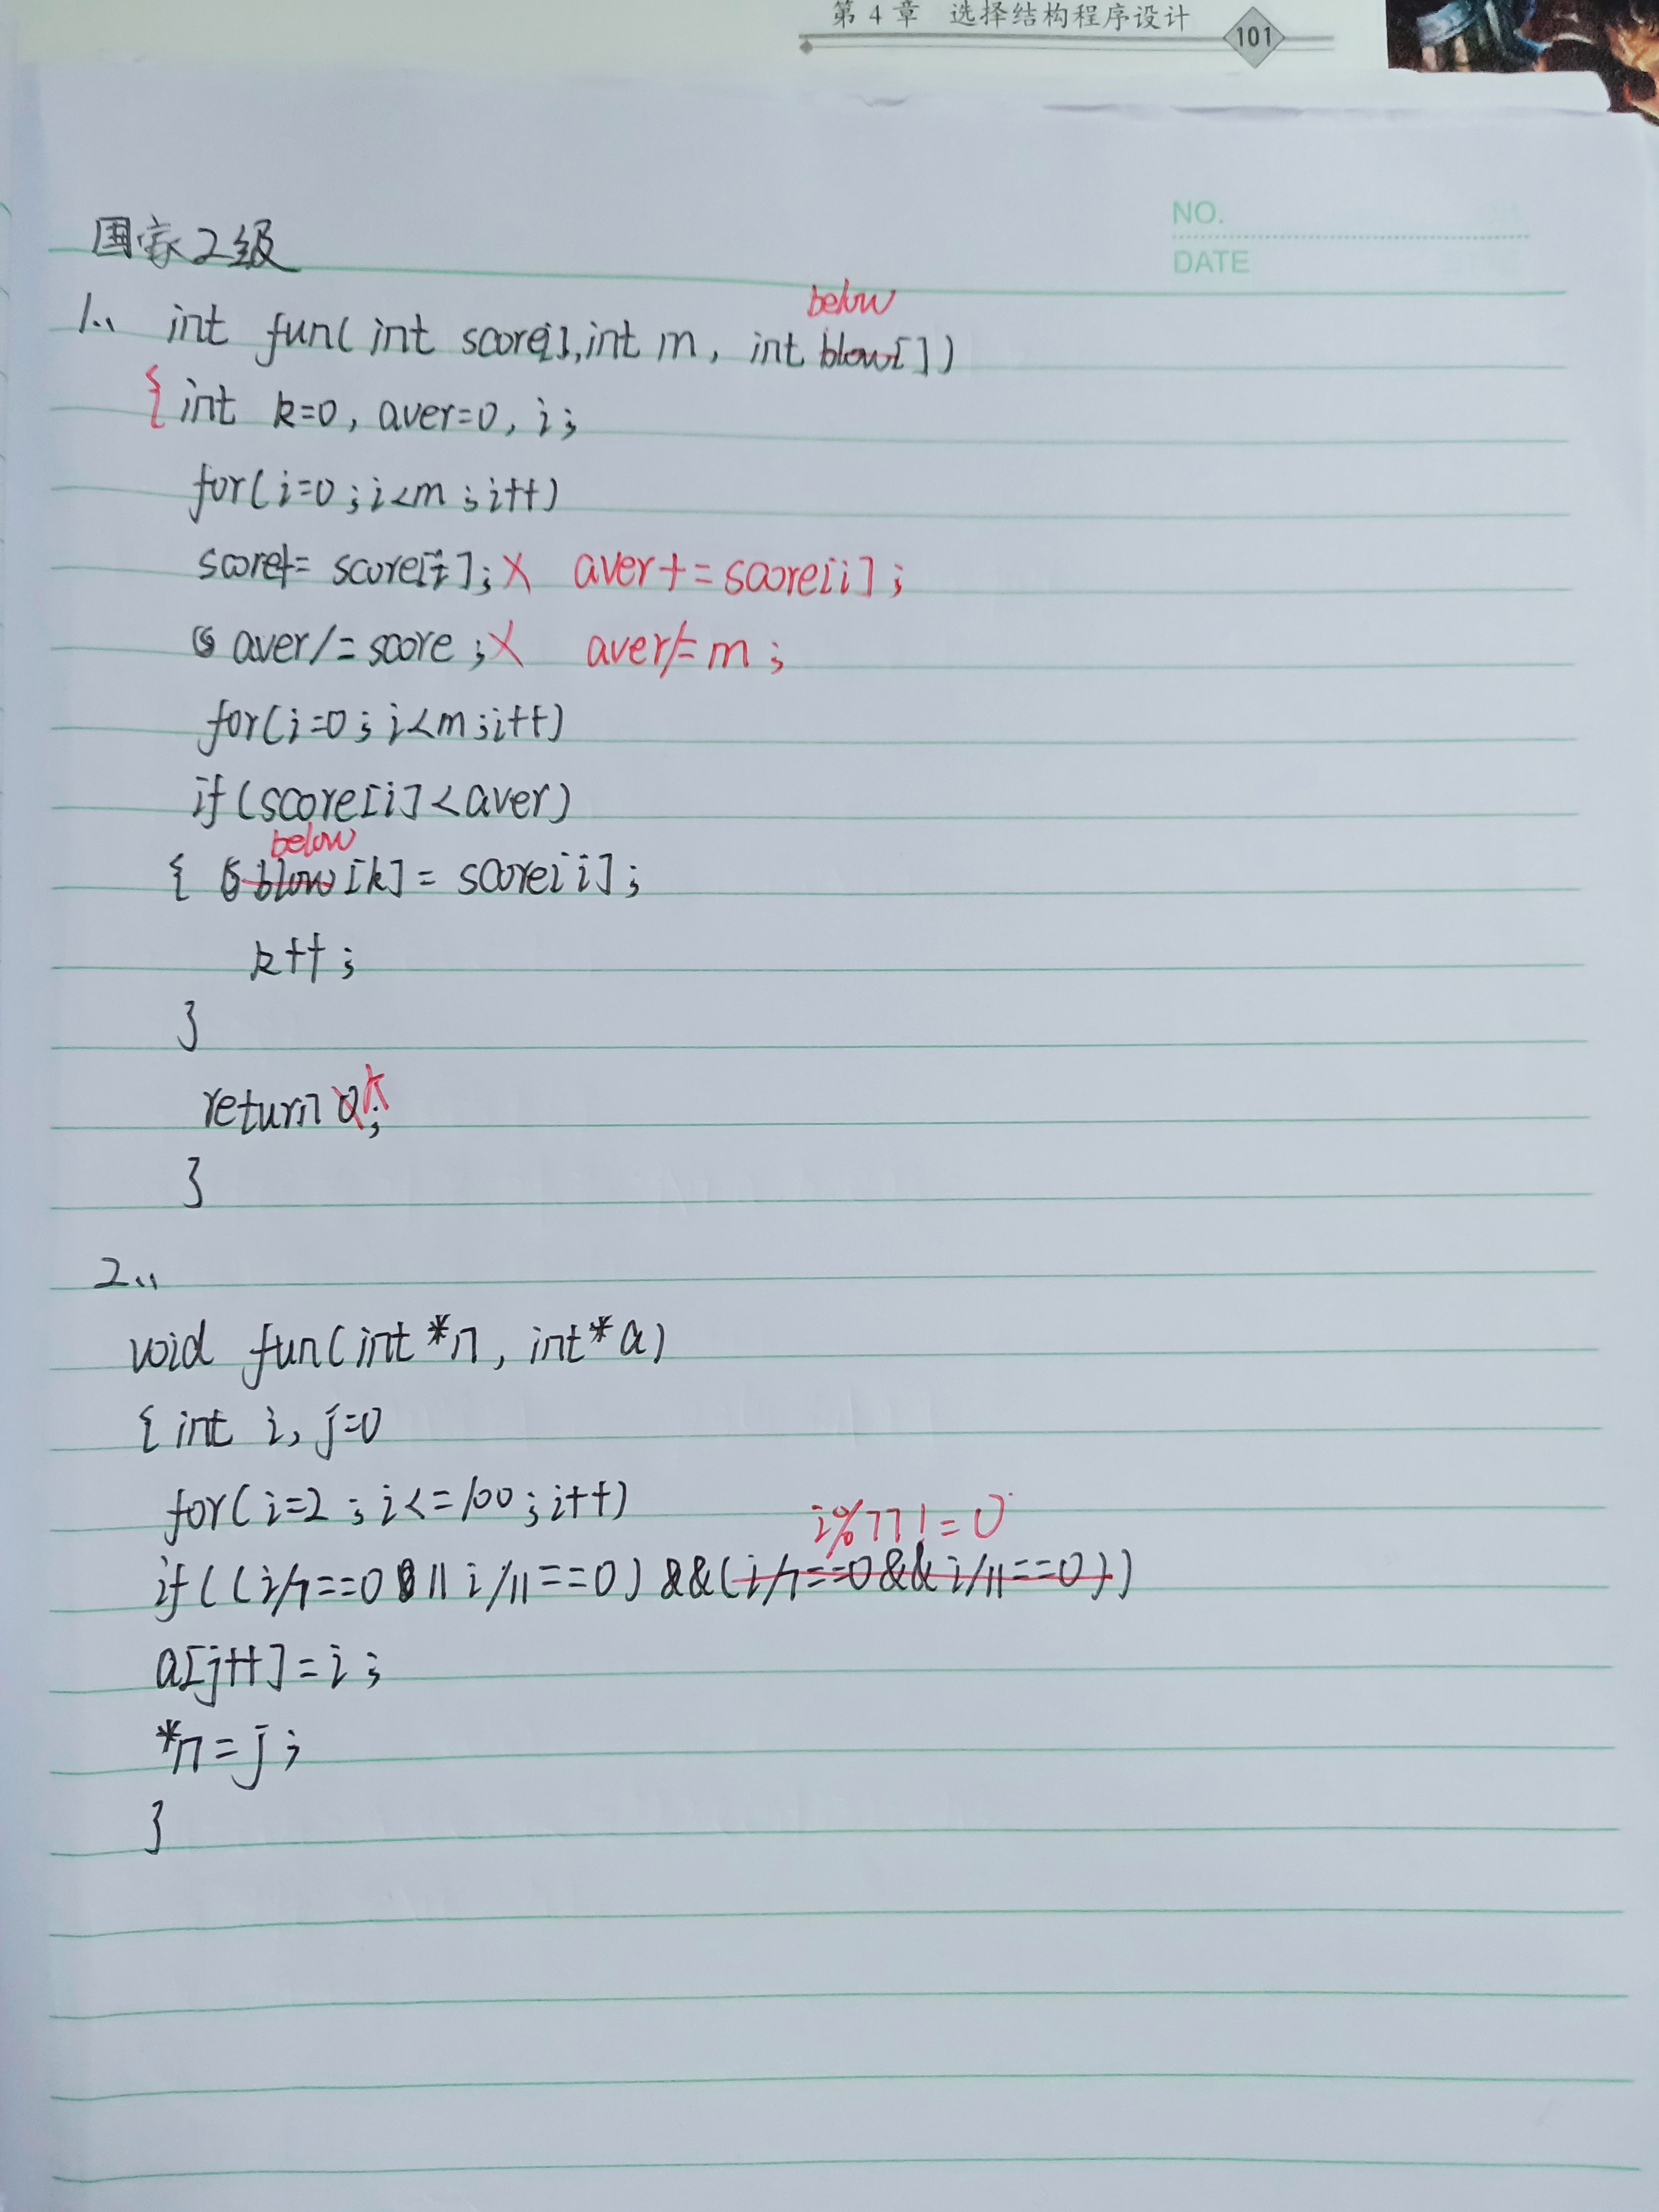 第 4 章 选择结构程序设计
101
NO.
DATE
国家2级
below
1.、 int fun( int score[], int m, int blow[])
{ int k=0, aver=0, i;
for(i=0;i<m;i++)
score+= score[i]; X aver+=score[i];
aver/=score; X aver/=m;
for(i=0;i<m;i++)
if(score[i]<aver)
below
{ blow[k]= score[i];
k++;
}
return 0 k;
}
2.、
void fun(int *n, int *a)
{ int i, j=0
for(i=2;i<=100;i++)
i%77!=0
if((i/7==0||i/11==0)&&(i/7==0&&i/11==0))
a[j++]=i;
*n=j;
}